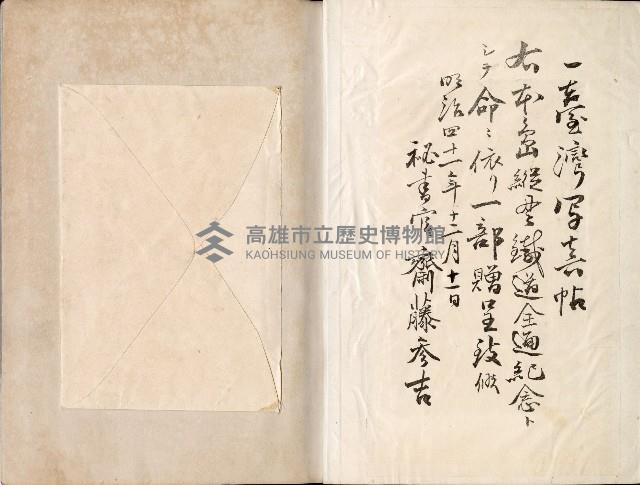 一臺灣写真帖
右本島縦貫鐵道全通紀念ト
シテ命ニ依リ一部贈呈致候
明治四十一年十一月十一日
秘書官齋藤参吉
高雄市立歷史博物館
KAOHSIUNG MUSEUM OF HISTORY